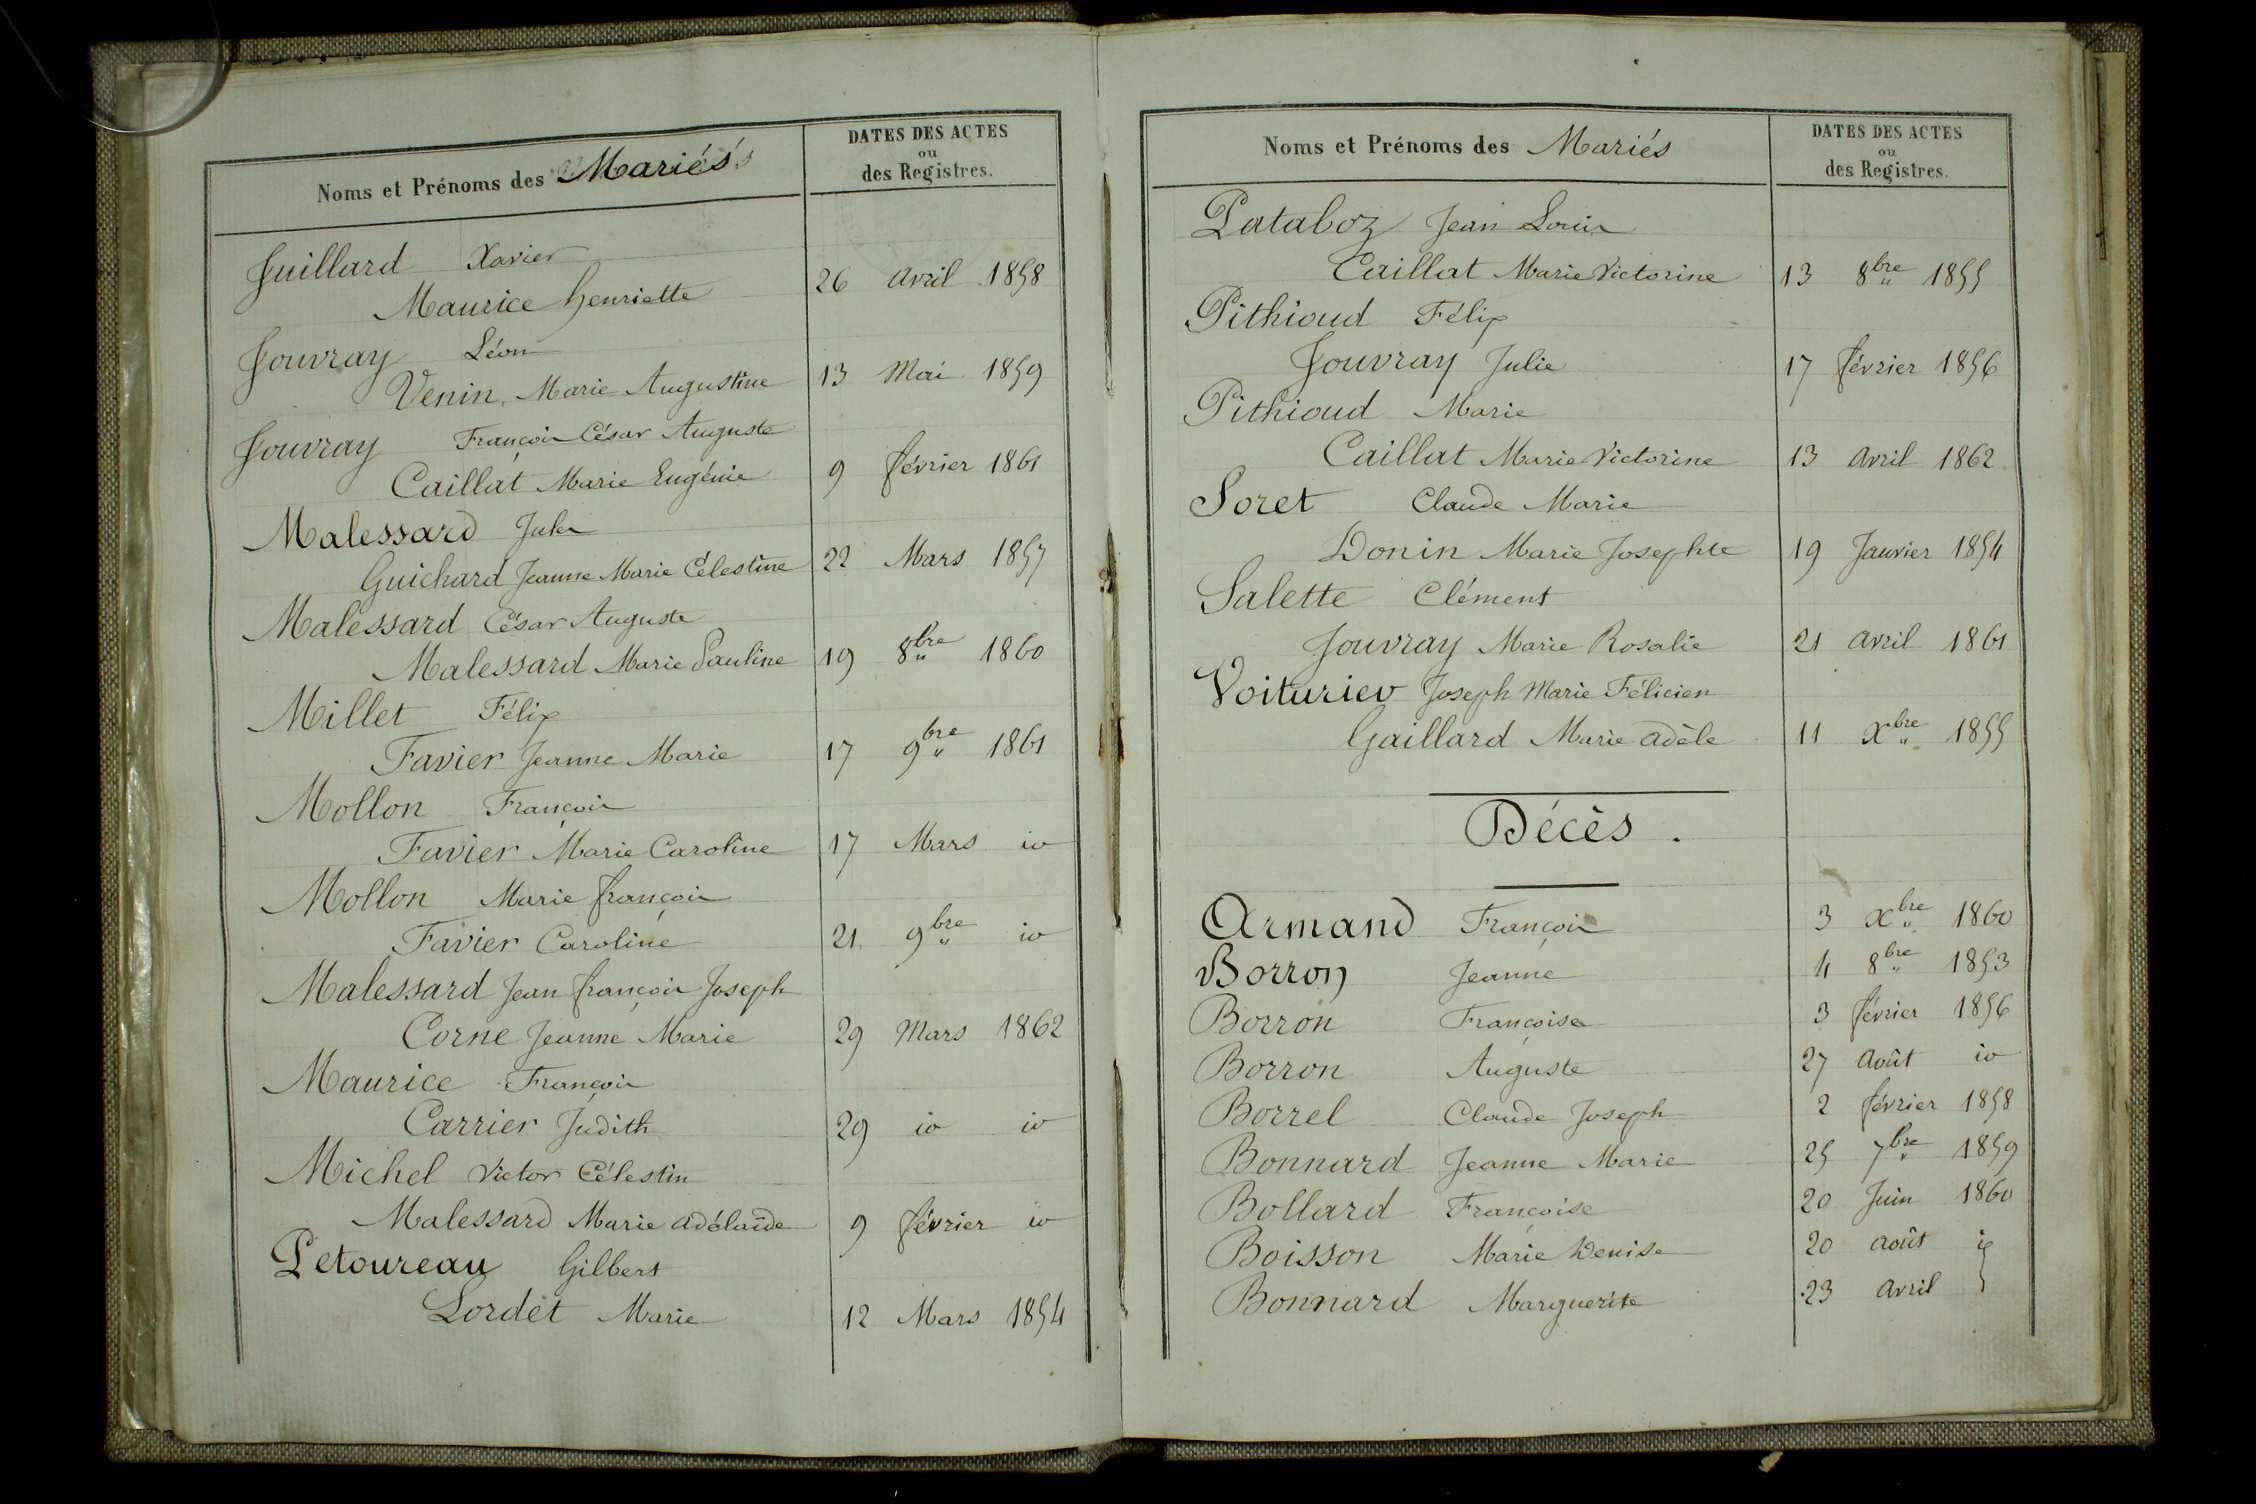 Noms et Prénoms des Mariés
DATES DES ACTES
ou
des Registres.
Juillard Xavier
Maurice henriette 26 avril 1858
Jouvray Léon
Venin Marie Augustine 13 Mai 1859
Jouvray François César Auguste
Caillat Marie Eugénie 9 février 1861
Malessard Jules
Guichard Jeanne Marie Célestine 22 Mars 1857
Malessard César Auguste
Malessard Marie Pauline 19 8bre 1860
Millet Félix
Favier Jeanne Marie 17 9bre 1861
Mollon François
Favier Marie Caroline 17 Mars io
Mollon Marie françois
Favier Caroline 21 9bre io
Malessard Jean françois Joseph
Corne Jeanne Marie 29 Mars 1862
Maurice François
Carrier Judith 29 io io
Michel Victor Célestin
Malessard Marie adélaïde 9 février io
Petoureau Gilbert
Lordet Marie 12 Mars 1854
Noms et Prénoms des Mariés
DATES DES ACTES
ou
des Registres.
Pataboz Jean Louis
Caillat Marie Victorine 13 8bre 1855
Pithioud Félix
Jouvray Julie 17 février 1856
Pithioud Marie
Caillat Marie Victorine 13 avril 1862
Soret Claude Marie
Donin Marie Josephte 19 Janvier 1854
Salette Clément
Jouvray Marie Rosalie 21 avril 1861
Voiturier Joseph Marie Félicien
Gaillard Marie adèle 11 xbre 1855
Décès.
Armand François 3 xbre 1860
Borron Jeanne 4 8bre 1853
Borron Françoise 3 février 1856
Borron Auguste 27 août io
Borrel Claude Joseph 2 février 1858
Bonnard Jeanne Marie 25 7bre 1859
Bollard Françoise 20 Juin 1860
Boisson Marie Denise 20 août
Bonnard Marguerite 23 avril